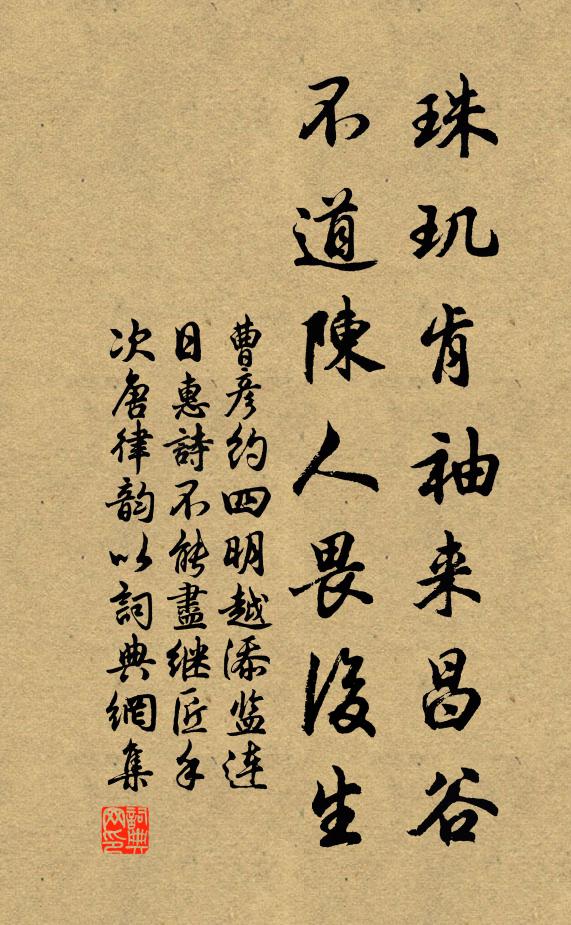 珠玑肯袖来昌谷
不道陳人畏後生
曹彦约四明越添监连
日惠詩不能盡继匠手
次唐律韵以詞典網集
詞典网印